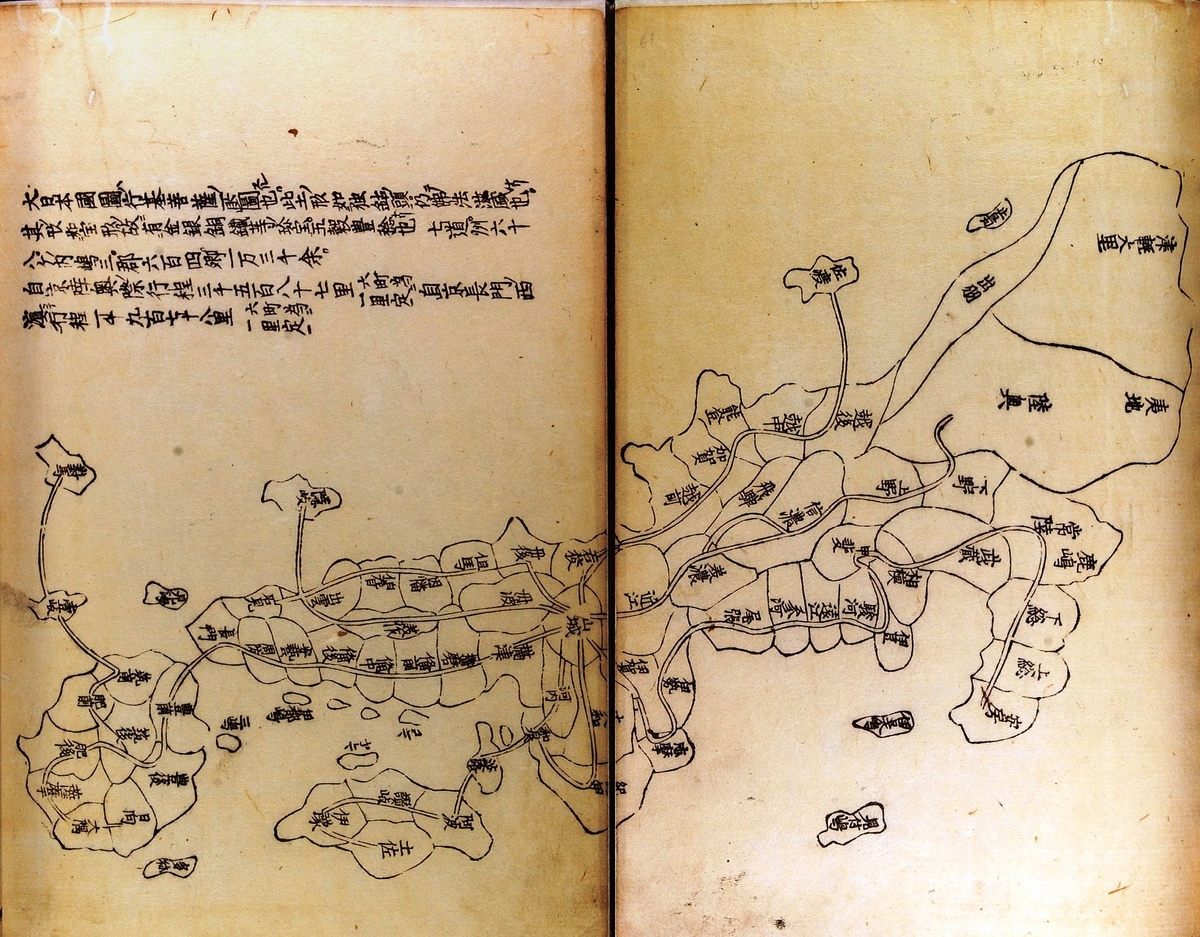 大日本國圖行基菩薩所圖也此土形如獨鈷頭仍佛法滋盛也
其形如寳形故有金銀銅鐵等珎宝五穀豊稔也 七道州六十
八ヶ内嶋三郡六百四郷一万三千余
自京陸奥際行程三千五百八十七里六町為一里定自京長門西
濱行程一千九百七十八里六町為一里定
津軽大里
出羽
夷地
陸奥
佐渡
能登
越中
越後
加賀
越前
飛騨
信濃
上野
下野
常陸
鹿嶋
武蔵
甲斐
相模
下総
上総
安房
美濃
近江
尾張
参河
遠江
駿河
伊豆
伊賀
伊勢
志摩
見付嶋
對馬
隠岐
壱岐
若狭
丹後
但馬
因幡
伯耆
出雲
石見
長門
丹波
美作
山城
摂津
播磨
備前
備中
備後
安藝
周防
河内
大和
和泉
淡路
讃岐
阿波
伊豫
土佐
筑前
豊前
肥前
筑後
肥後
豊後
薩摩
日向
大隅